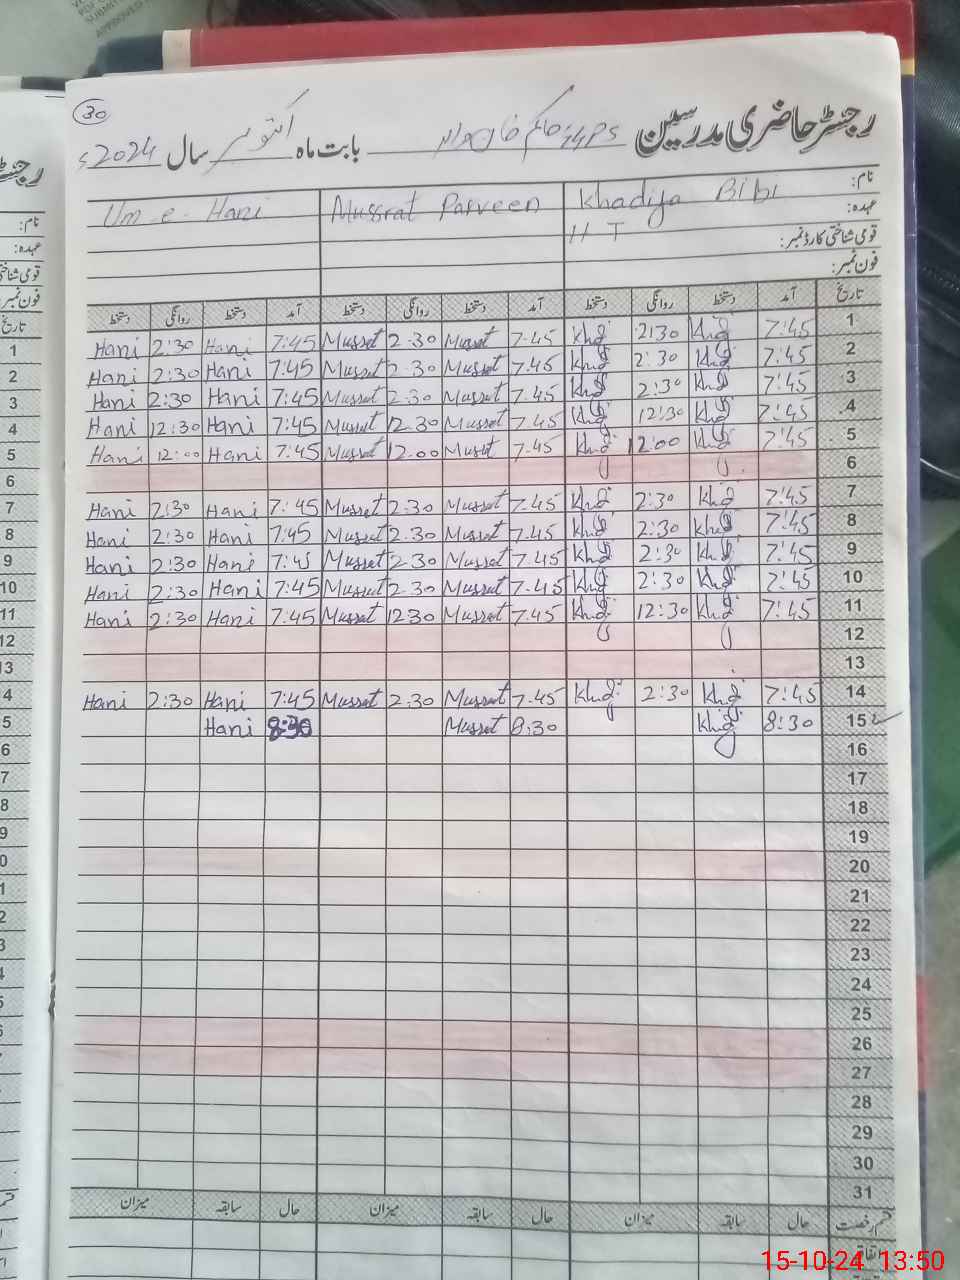 30
رجسٹر حاضری مدرسین GGPS حاکم خان بابت ماہ اکتوبر سال 2024ء
نام: Khadija Bibi Mussrat Parveen Um-e-Hani
عہدہ: H T
قومی شناختی کارڈ نمبر:
فون نمبر:
تاریخ آمد دستخط روانگی دستخط آمد دستخط روانگی دستخط آمد دستخط روانگی دستخط
Hani 2:30 Hani 7:45 Mussrat 2-30 Mussrat 7-45 Khd 2:30 Khd 7:45 1
Hani 2:30 Hani 7:45 Mussrat 2-30 Mussrat 7-45 Khd 2:30 Khd 7:45 2
Hani 2:30 Hani 7:45 Mussrat 2-30 Mussrat 7-45 Khd 2:30 Khd 7:45 3
Hani 12:30 Hani 7:45 Mussrat 12-30 Mussrat 7-45 Khd 12:30 Khd 7:45 4
Hani 12:00 Hani 7:45 Mussrat 12-00 Mussrat 7-45 Khd 12:00 Khd 7:45 5
6
Hani 2:30 Hani 7:45 Mussrat 2-30 Mussrat 7-45 Khd 2:30 Khd 7:45 7
Hani 2:30 Hani 7:45 Mussrat 2-30 Mussrat 7-45 Khd 2:30 Khd 7:45 8
Hani 2:30 Hani 7:45 Mussrat 2-30 Mussrat 7-45 Khd 2:30 Khd 7:45 9
Hani 2:30 Hani 7:45 Mussrat 2-30 Mussrat 7-45 Khd 2:30 Khd 7:45 10
Hani 2:30 Hani 7:45 Mussrat 12-30 Mussrat 7-45 Khd 12:30 Khd 7:45 11
12
13
Hani 2:30 Hani 7:45 Mussrat 2-30 Mussrat 7-45 Khd 2:30 Khd 7:45 14
Hani 8:30 Mussrat 8:30 Khd 8:30 15
16
17
18
19
20
21
22
23
24
25
26
27
28
29
30
31
قسم رخصت حال سابقہ میزان حال سابقہ میزان حال سابقہ میزان
15-10-24 13:50